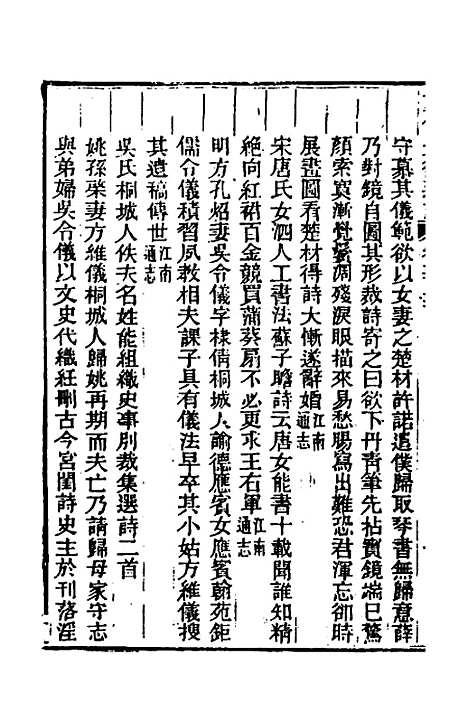 守慕其儀範欲以女妻之楚材許諾遣僕歸取琴書無歸意薛
乃對鏡自圖其形裁詩寄之曰欲下丹青筆先拈寶鏡端已驚
顏索寞漸覺鬢凋殘淚眼描來易愁腸寫出難恐君渾忘卻時
展畫圖看楚材得詩大慚遂辭婚江南通志
宋唐氏女泗人工書法蘇子瞻詩云唐女能書十載聞誰知精
絶向紅裙百金競買蒲葵扇不必更求王右軍江南通志
明方孔炤妻吳令儀字棣倩桐城人諭德應賓女應賓翰苑鉅
儒令儀積習夙敎相夫課子具有儀法早卒其小姑方維儀搜
其遺稿傳世江南通志
吳氏桐城人佚夫名姓能組織史事別裁集選詩二首
姚孫棨妻方維儀桐城人歸姚再期而夫亡乃請歸母家守志
與弟婦吳令儀以文史代織紝刪古今宮閨詩史主於刊落淫